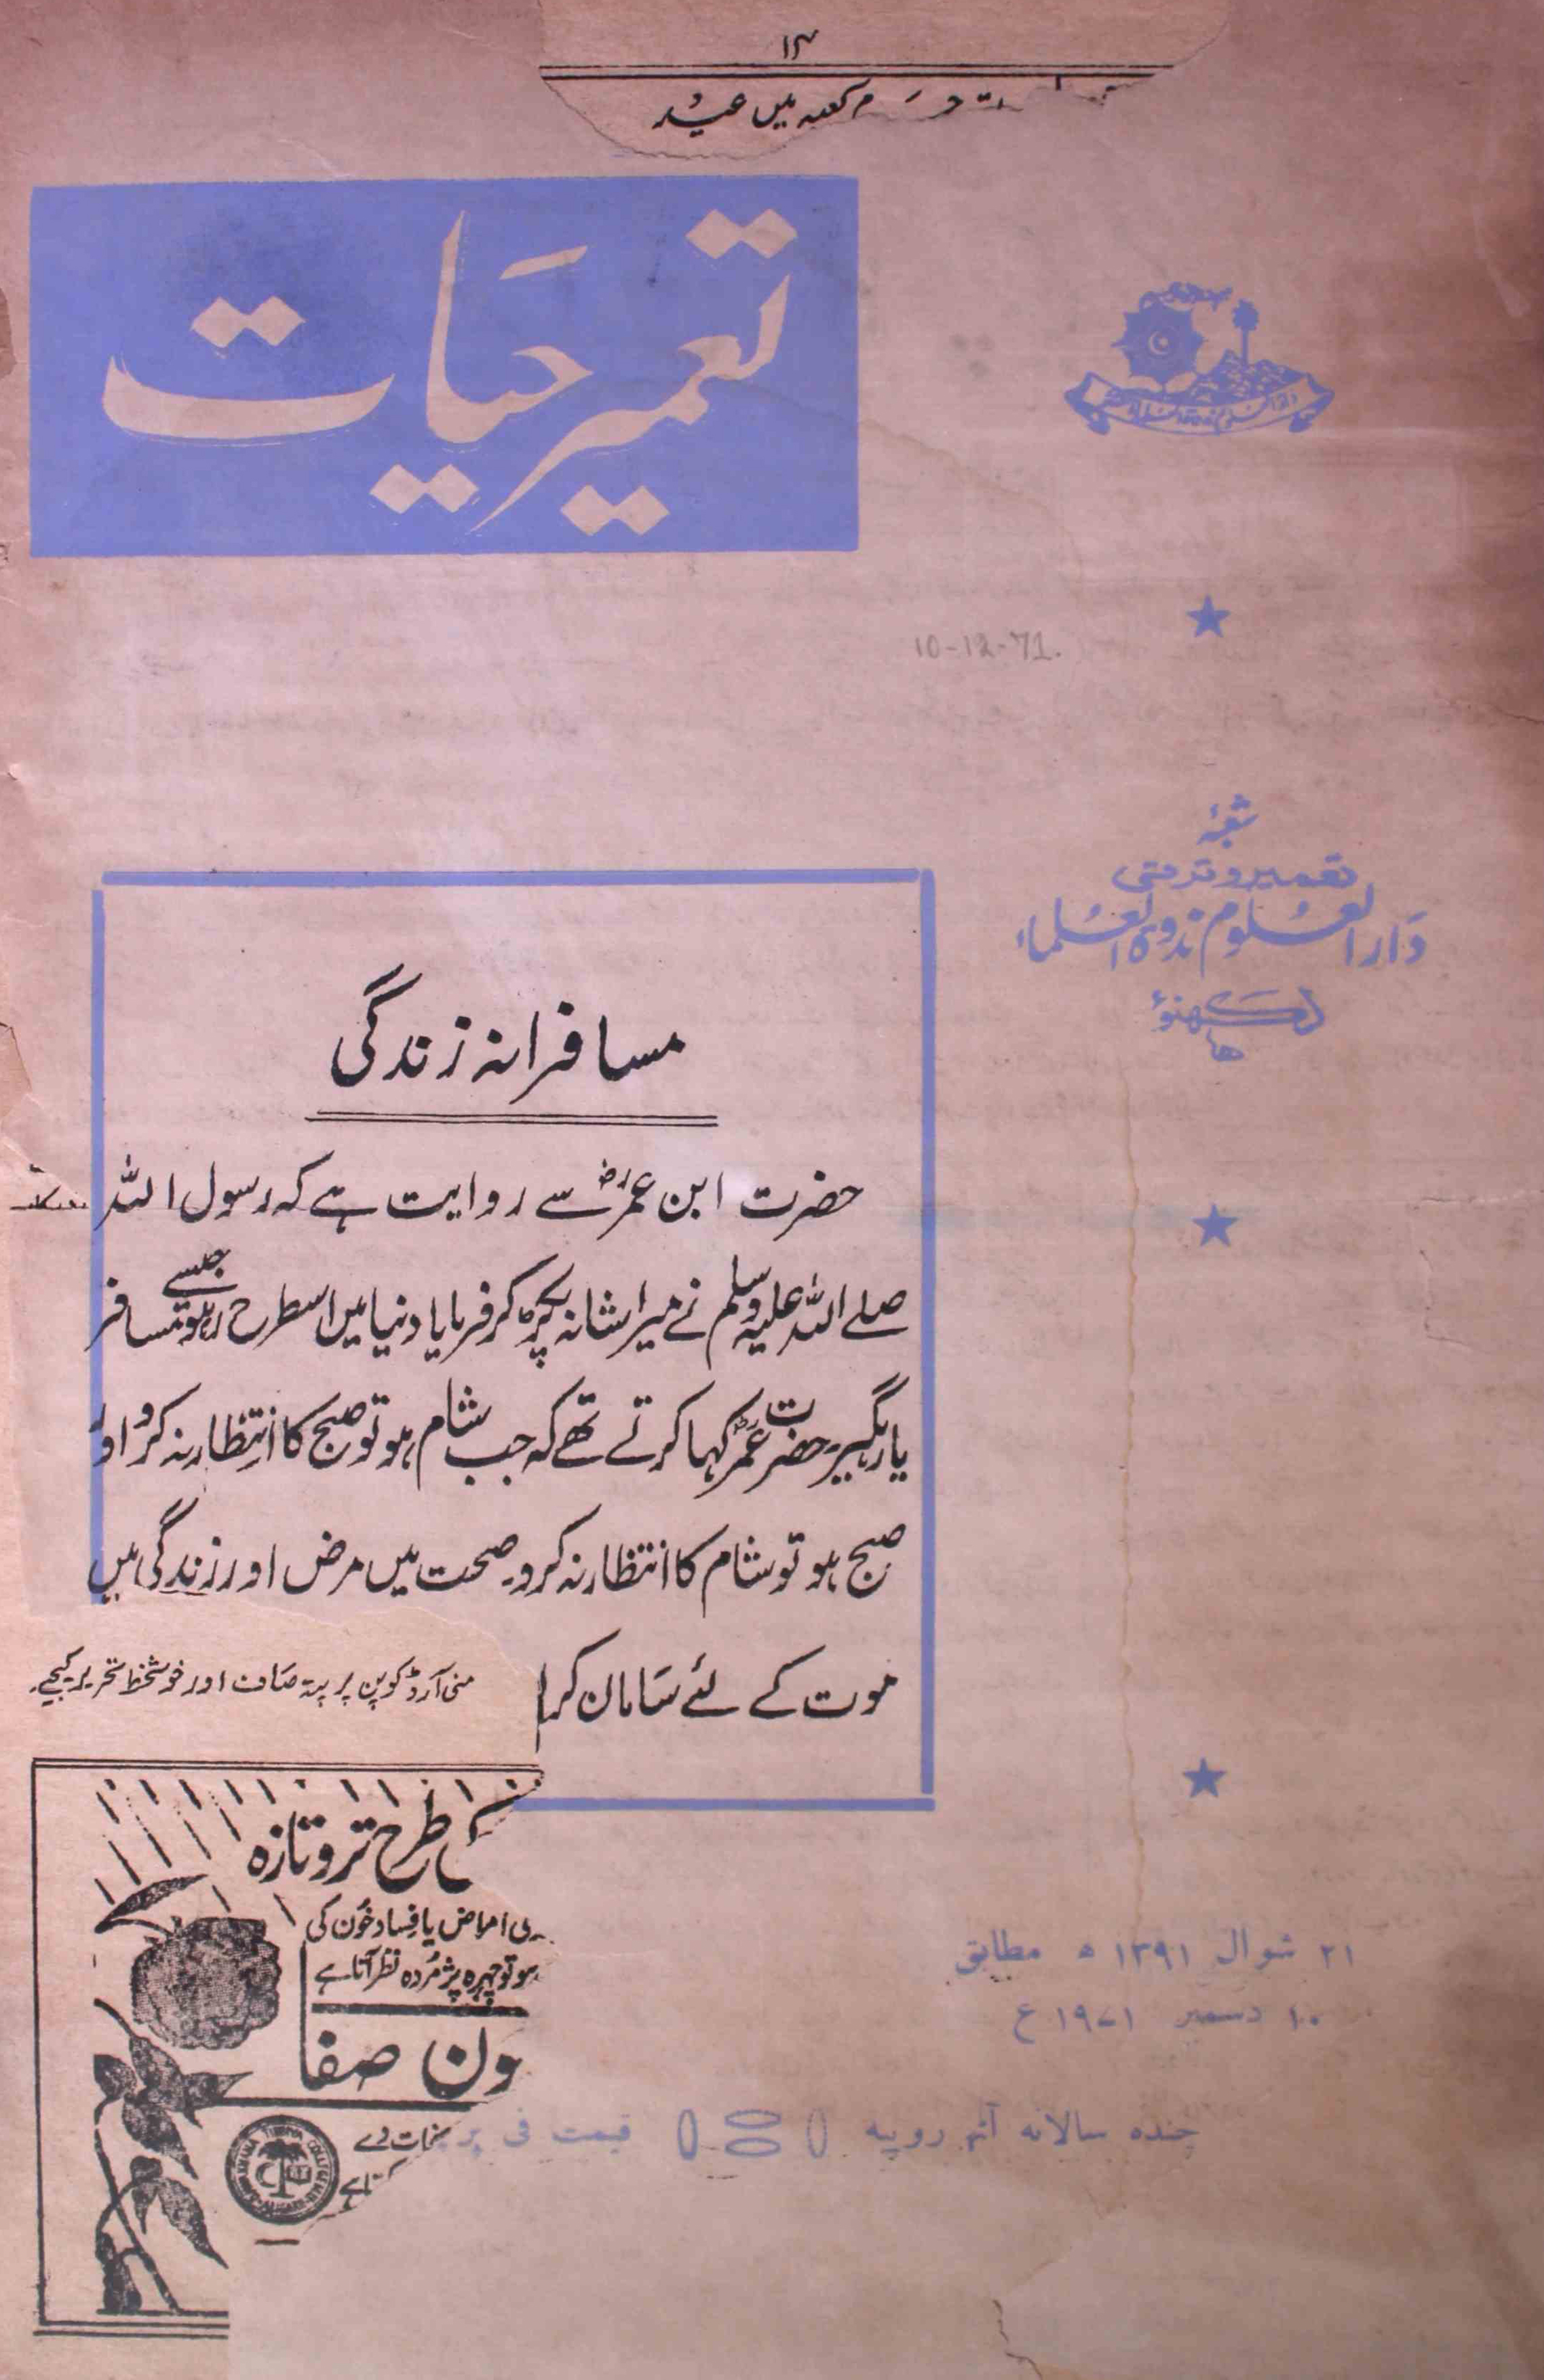 ۱۴
کعبہ میں عید
تعمیر حیات
10-12-71.
شعبۂ
تعمیر و ترقی
دارالعلوم ندوۃ العلماء
لکھنؤ
مسافرانہ زندگی
حضرت ابن عمرؓ سے روایت ہے کہ رسول اللہ
صلے اللہ علیہ وسلم نے میرا شانہ پکڑ کر فرمایا دنیا میں اسطرح رہو جیسے مسافر
یا رہگیر۔ حضرت عمرؓ کہا کرتے تھے کہ جب شام ہو تو صبح کا انتظار نہ کرو اور
صبح ہو تو شام کا انتظار نہ کرو۔ صحت میں مرض اور زندگی میں
موت کے لئے سامان کرا
منی آرڈر کوپن پر پتہ صاف اور خوشخط تحریر کیجیے۔
طرح تروتازہ
امراض یا فساد خون کی
ہو تو چہرہ پژمردہ نظر آتا ہے
ون صفا
نجات دے
۲۱ شوال ۱۳۹۱ ھ مطابق
۱۰ دسمبر ۱۹۷۱ ع
چندہ سالانہ آٹھ روپیہ
قیمت فی پر